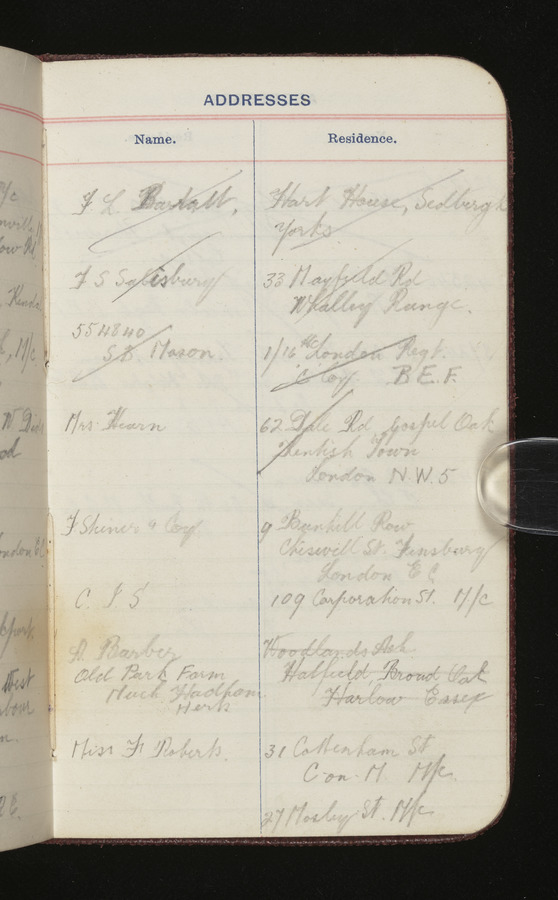 ADDRESSES
Name. Residence.
F L. Hart House, Sedbergh
Yorks
F S Salisbury 33 Mayfield Rd
Whalley Range.
554840
S.B. Mason. 1/16th London Regt.
C Coy. B.E.F.
Mrs Hearn 62 Dale Rd Gospel Oak
Kentish Town
London N.W.5
F Skiner & Coy. 9 Bunhill Row
Chiswell St. Finsbury
London E C
C. I. S 109 Corporation St. M/c
A Barber Woodlands Ash
Old Park Farm Hatfield, Broad Oak
Much Hadham Harlow Essex
Herts
Miss F Roberts. 31 Cottenham St
C-on-M. M/c.
27 Mosley St. M/c